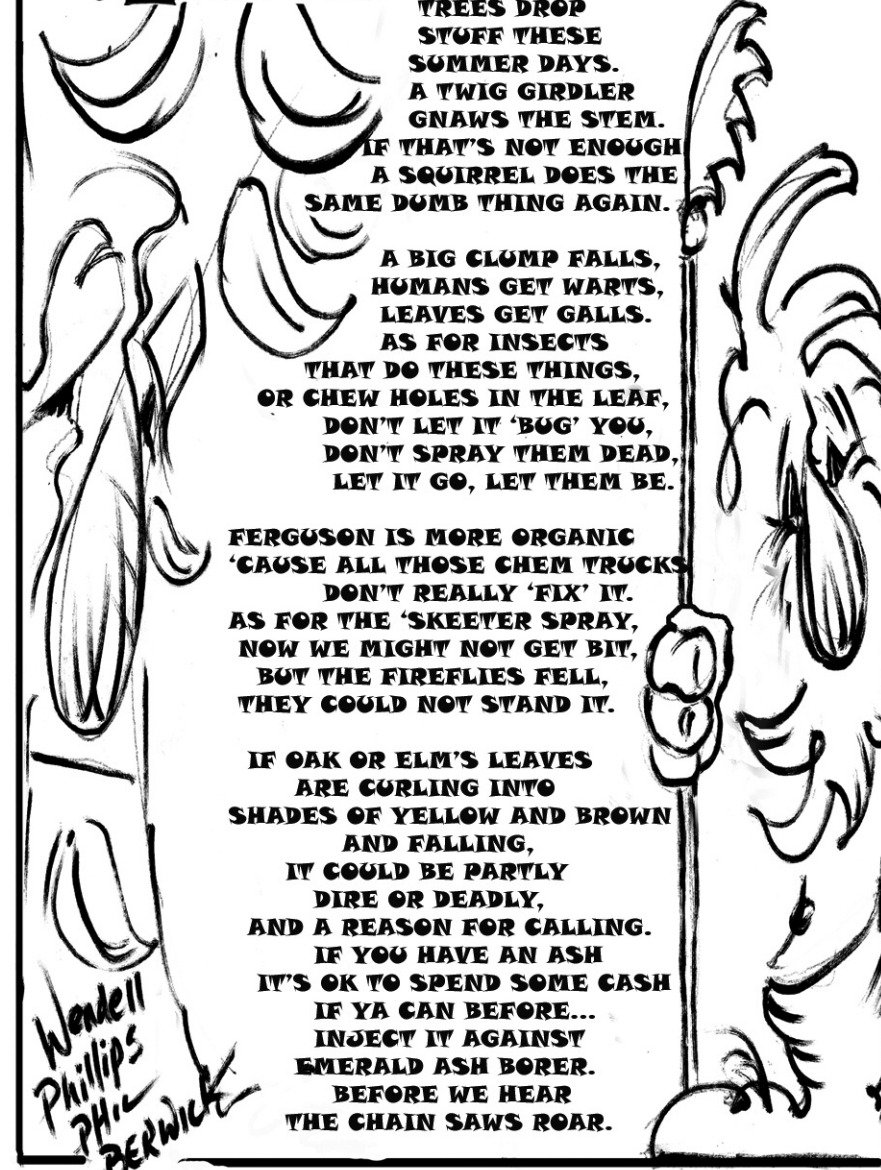 TREES DROP
STUFF THESE
SUMMER DAYS.
A TWIG GIRDLER
GNAWS THE STEM.
IF THAT'S NOT ENOUGH
A SQUIRREL DOES THE
SAME DUMB THING AGAIN.
A BIG CLUMP FALLS,
HUMANS GET WARTS,
LEAVES GET GALLS.
AS FOR INSECTS
THAT DO THESE THINGS,
OR CHEW HOLES IN THE LEAF,
DON'T LET IT 'BUG' YOU,
DON'T SPRAY THEM DEAD,
LET IT GO, LET THEM BE.
FERGUSON IS MORE ORGANIC
'CAUSE ALL THOSE CHEM TRUCKS
DON'T REALLY 'FIX' IT.
AS FOR THE 'SKEETER SPRAY,
NOW WE MIGHT NOT GET BIT,
BUT THE FIREFLIES FELL,
THEY COULD NOT STAND IT.
IF OAK OR ELM'S LEAVES
ARE CURLING INTO
SHADES OF YELLOW AND BROWN
AND FALLING,
IT COULD BE PARTLY
DIRE OR DEADLY,
AND A REASON FOR CALLING.
IF YOU HAVE AN ASH
IT'S OK TO SPEND SOME CASH
IF YA CAN BEFORE...
INJECT IT AGAINST
EMERALD ASH BORER.
BEFORE WE HEAR
THE CHAIN SAWS ROAR.
Wendell
Phillips
PHIL
BERWICK